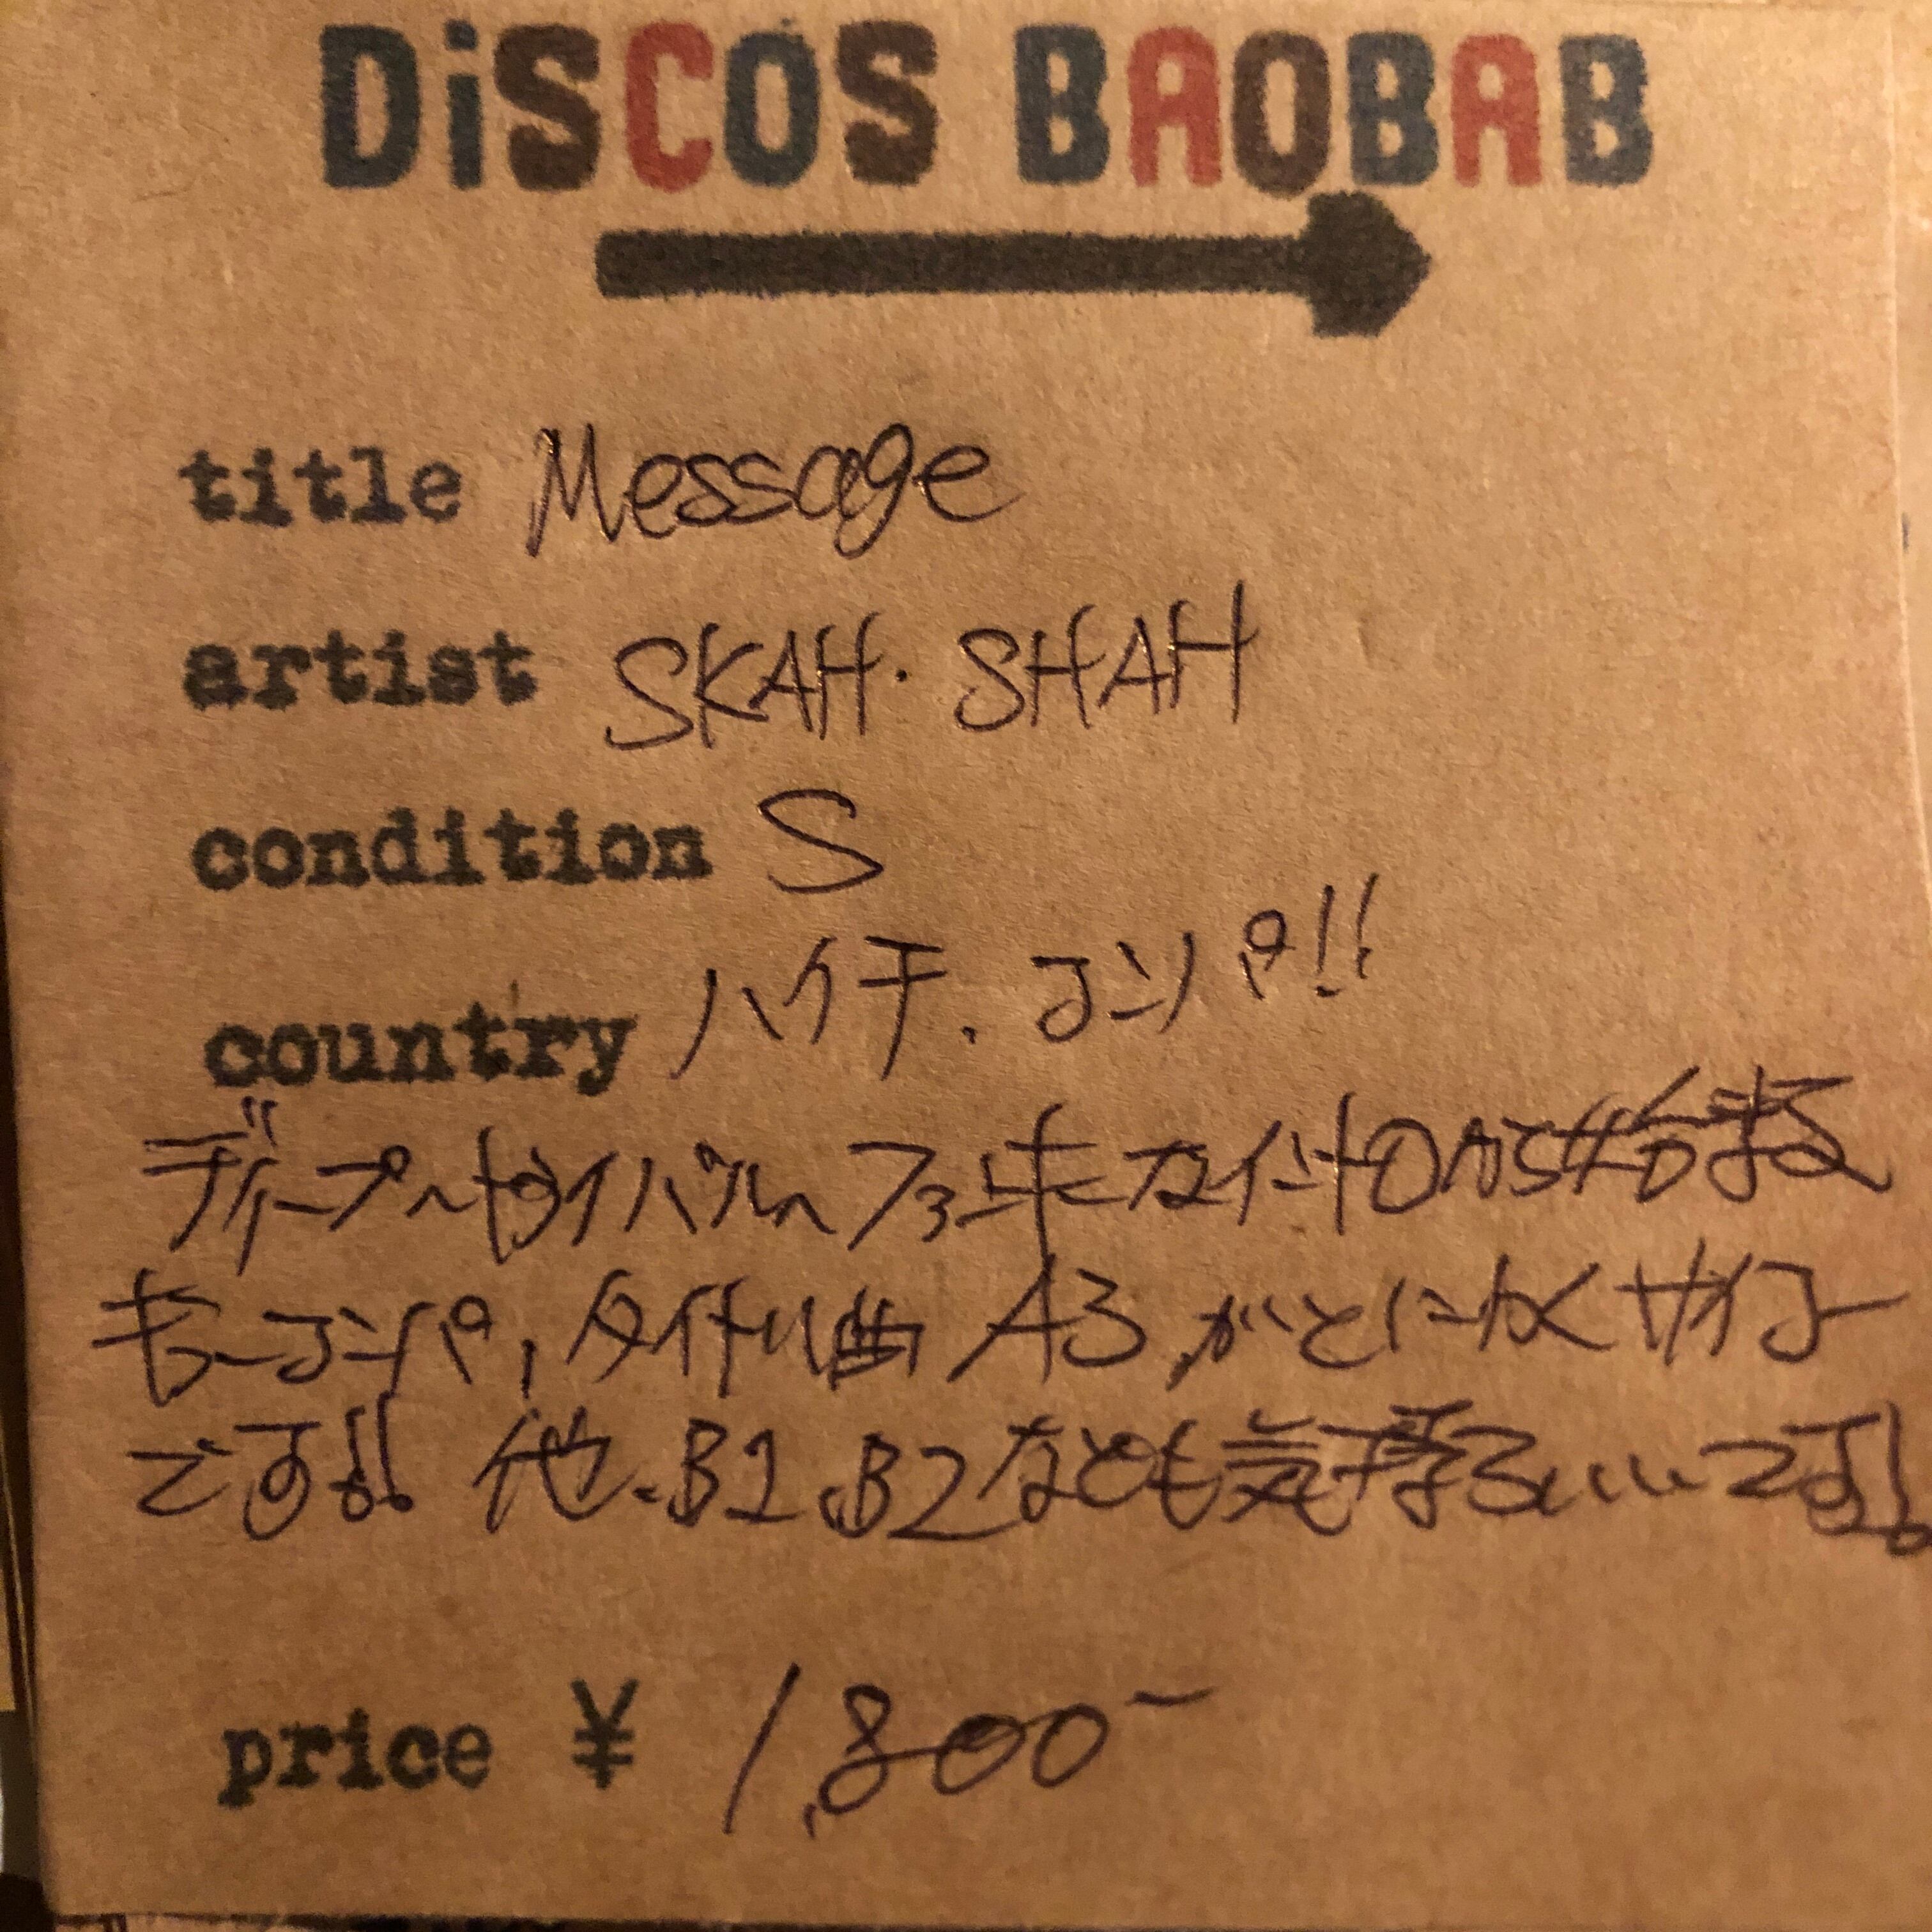 DiSCOS BAOBAB
title Message
artist SKAH・SHAH
condition S
country ハイチ、コンパ!!
ディープ〜
モーコンパ, タイトル曲 A3,がとにかくサイコー
です!! 他、B1、B2なども気持ちいいです!
price ¥ 1,800-